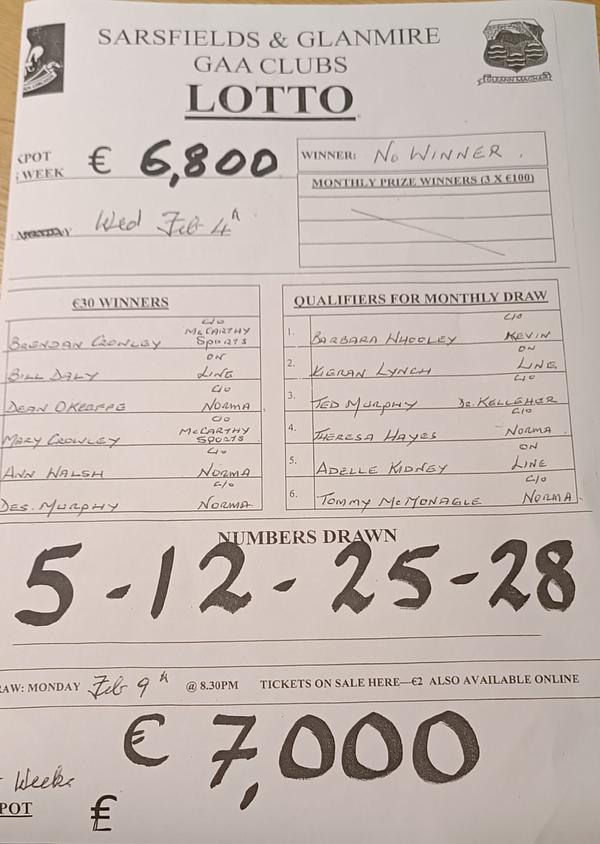 SARSFIELDS & GLANMIRE
GAA CLUBS
LOTTO
GLEANN MAGHAIR
KPOT
WEEK
€ 6,800
WINNER: NO WINNER.
MONTHLY PRIZE WINNERS (3 X €100)
MONDAY Wed Feb 4th
€30 WINNERS
BRENDAN CROWLEY C/O MCCARTHY SPORTS
BILL DALY ON LINE
DEAN O'KEEFFE C/O NORMA
MARY CROWLEY C/O MCCARTHY SPORTS
ANN WALSH C/O NORMA
DES. MURPHY C/O NORMA
QUALIFIERS FOR MONTHLY DRAW
1. BARBARA WHOOLEY C/O KEVIN
2. KIERAN LYNCH ON LINE
3. TED MURPHY C/O DR. KELLEHER
4. THERESA HAYES C/O NORMA
5. ADELLE KIDNEY ON LINE
6. TOMMY MCMONAGLE C/O NORMA
NUMBERS DRAWN
5-12-25-28
AW: MONDAY Feb 9th @ 8.30PM TICKETS ON SALE HERE—€2 ALSO AVAILABLE ONLINE
€ 7,000
Weeks
POT €